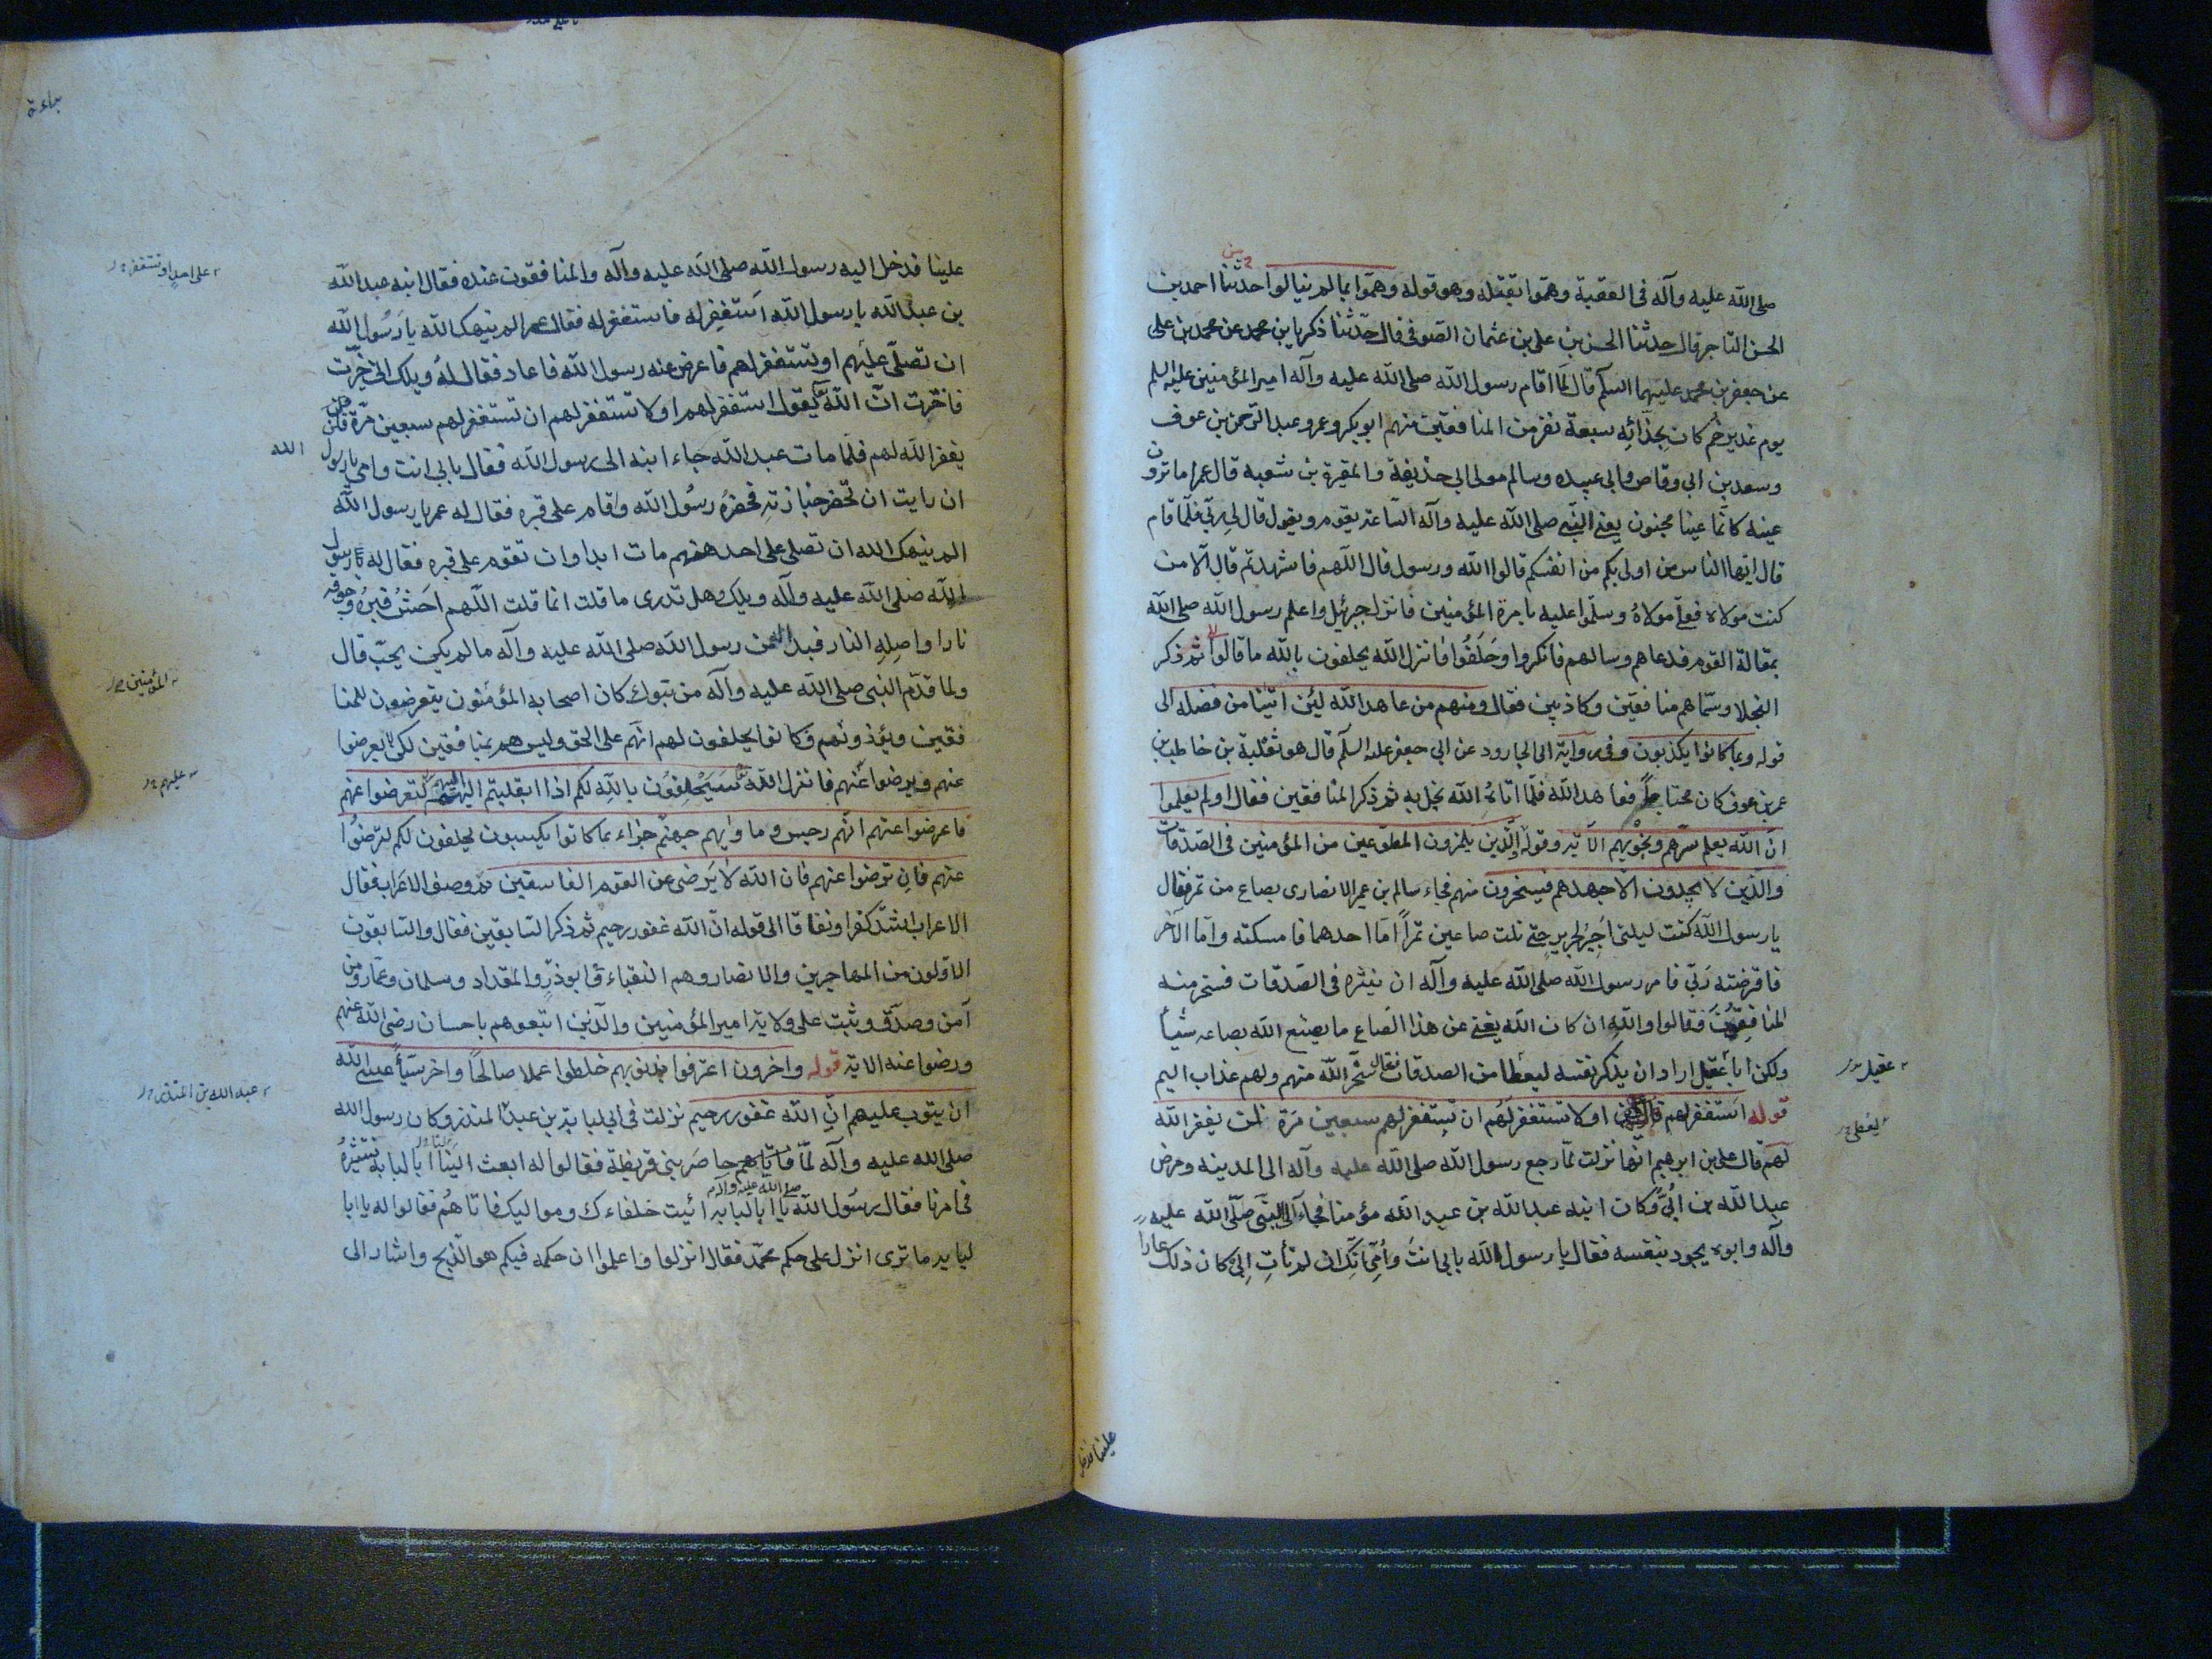 صلى الله عليه وآله فى العقبة وهموا بقتله وهو قوله وهموا بما لم ينالوا حدثنا احمد بن
الحسن التاجر قال حدثنا الحسن بن على بن عثمان الصوفى قال حدثنا زكريا بن محمد عن محمد بن على
عن جعفر بن محمد عليهما السلم قال لما اقام رسول الله صلى الله عليه وآله امير المؤمنين عليه السلم
يوم غدير خم كان بحذائه سبعة نفر من المنافقين منهم ابو بكر وعمر وعبد الرحمن بن عوف
وسعد بن ابى وقاص وابى عبيده وسالم مولى ابى حذيفة والمغيرة بن شعبه قال عمر اما ترون
عينه كانما عينا مجنون يعنى النبى صلى الله عليه وآله الساعة يقوم ويقول قال لى ربى فلما قام
قال ايها الناس من اولى بكم من انفسكم قالوا الله ورسوله قال اللهم فاشهد ثم قال الا من
كنت مولاه فعلى مولاه وسلموا عليه بامرة المؤمنين فانزل جبرئيل واعلم رسول الله صلى الله
بمقالة القوم فدعاهم وسالهم فانكروا وحلفوا فانزل الله يحلفون بالله ما قالوا ثم ذكر
البخلا وسماهم منافقين وكاذبين فقال ومنهم من عاهد الله لئن اتينا من فضله الى
قوله وبما كانوا يكذبون وفى رواية ابى الجارود عن ابى جعفر عليه السلم قال هو ثعلبة بن خاطب بن
عمر بن عوف كان محتاجا فعاهد الله فلما اتاه الله بخل به ثم ذكر المنافقين فقال اولم يعلموا
ان الله يعلم سرهم ونجويهم الاية وقوله الذين يلمزون المطوعين من المؤمنين فى الصدقات
والذين لا يجدون الا جهدهم فيسخرون منهم فجاء سالم بن عمير الانصارى بصاع من تمر فقال
يا رسول الله كنت ليلتى اجير الجرير حتى نلت صاعين تمرا اما احدهما فامسكته واما الآخر
فاقرضته ربى فامر رسول الله صلى الله عليه وآله ان ينثره فى الصدقات فسخر منه
المنافقون فقالوا والله ان كان الله يغنى عن هذا الصاع ما يصنع الله بصاعه شيأ
ولكن ابا عقيل اراد ان يذكر نفسه ليعطا من الصدقات فقال سخر الله منهم ولهم عذاب اليم
عقيل
يعطى
قوله استغفر لهم او لا تستغفر لهم ان تستغفر لهم سبعين مرة فلن يغفر الله
لهم قال على بن ابرهيم انها نزلت لما رجع رسول الله صلى الله عليه وآله الى المدينه ومرض
عبد الله بن ابى وكان ابنه عبد الله بن عبد الله مؤمنا فجاء الى النبى صلى الله عليه
وآله وابوه يجود بنفسه فقال يا رسول الله بابى انت وامى انك ان لم تأت ابى كان ذلك عارا
علينا فدخل
علينا فدخل اليه رسول الله صلى الله عليه وآله والمنافقون عنده فقال ابنه عبد الله
بن عبد الله يا رسول الله استغفر له فاستغفر له فقال عمر الم ينهك الله يا رسول الله
ان تصلى عليهم او تستغفر لهم فاعرض عنه رسول الله فاعاد فقال له ويلك انى خيرت
على احد او تستغفر
فاخترت ان الله يقول استغفر لهم او لا تستغفر لهم ان تستغفر لهم سبعين مرة فلن
يغفر الله لهم فلما مات عبد الله جاء ابنه الى رسول الله فقال بابى انت وامى يا رسول الله
ان رايت ان تحضر جنازته فحضره رسول الله وقام على قبره فقال له عمر يا رسول الله
الم ينهك الله ان تصلى على احد منهم مات ابدا وان تقوم على قبره فقال له رسول
الله صلى الله عليه وآله ويلك وهل تدرى ما قلت انما قلت اللهم احش قبره وجوفه
نارا واصله النار فبدا من رسول الله صلى الله عليه وآله ما لم يكن يحب قال
ولما قدم النبى صلى الله عليه وآله من تبوك كان اصحابه المؤمنون يتعرضون للمنا
المؤمنين
فقين ويؤذونهم وكانوا يحلفون لهم انهم على الحق وليس هم بمنافقين لكى لا يعرضوا
عنهم ويرضوا عنهم فانزل الله سيحلفون بالله لكم اذا انقلبتم اليهم لتعرضوا عنهم
عليهم
فاعرضوا عنهم انهم رجس وماويهم جهنم جزاء بما كانوا يكسبون يحلفون لكم لترضوا
عنهم فان ترضوا عنهم فان الله لا يرضى عن القوم الفاسقين ثم وصف الاعراب فقال
الاعراب اشد كفرا ونفاقا الى قوله ان الله غفور رحيم ثم ذكر السابقين فقال والسابقون
الاولون من المهاجرين والانصار وهم النقباء وابو ذر والمقداد وسلمان وعمار ومن
آمن وصدق وثبت على ولاية امير المؤمنين والذين اتبعوهم باحسان رضى الله عنهم
ورضوا عنه الاية قوله واخرون اعترفوا بذنوبهم خلطوا عملا صالحا واخر سيأ عسى الله
ان يتوب عليهم ان الله غفور رحيم نزلت فى ابى لبابة بن عبد المنذر وكان رسول الله
عبد الله بن المنذر
صلى الله عليه وآله لما حاصر بنى قريظة فقالوا له ابعث الينا ابا لبابة نستشيره
فى امرنا فقال رسول الله صلى الله عليه وآله يا ابا لبابه ائت خلفاءك ومواليك فاتاهم فقالوا له يا ابا
لبابه ما ترى انزل على حكم محمد فقال انزلوا واعلموا ان حكمه فيكم هو الذبح واشار الى
براءة